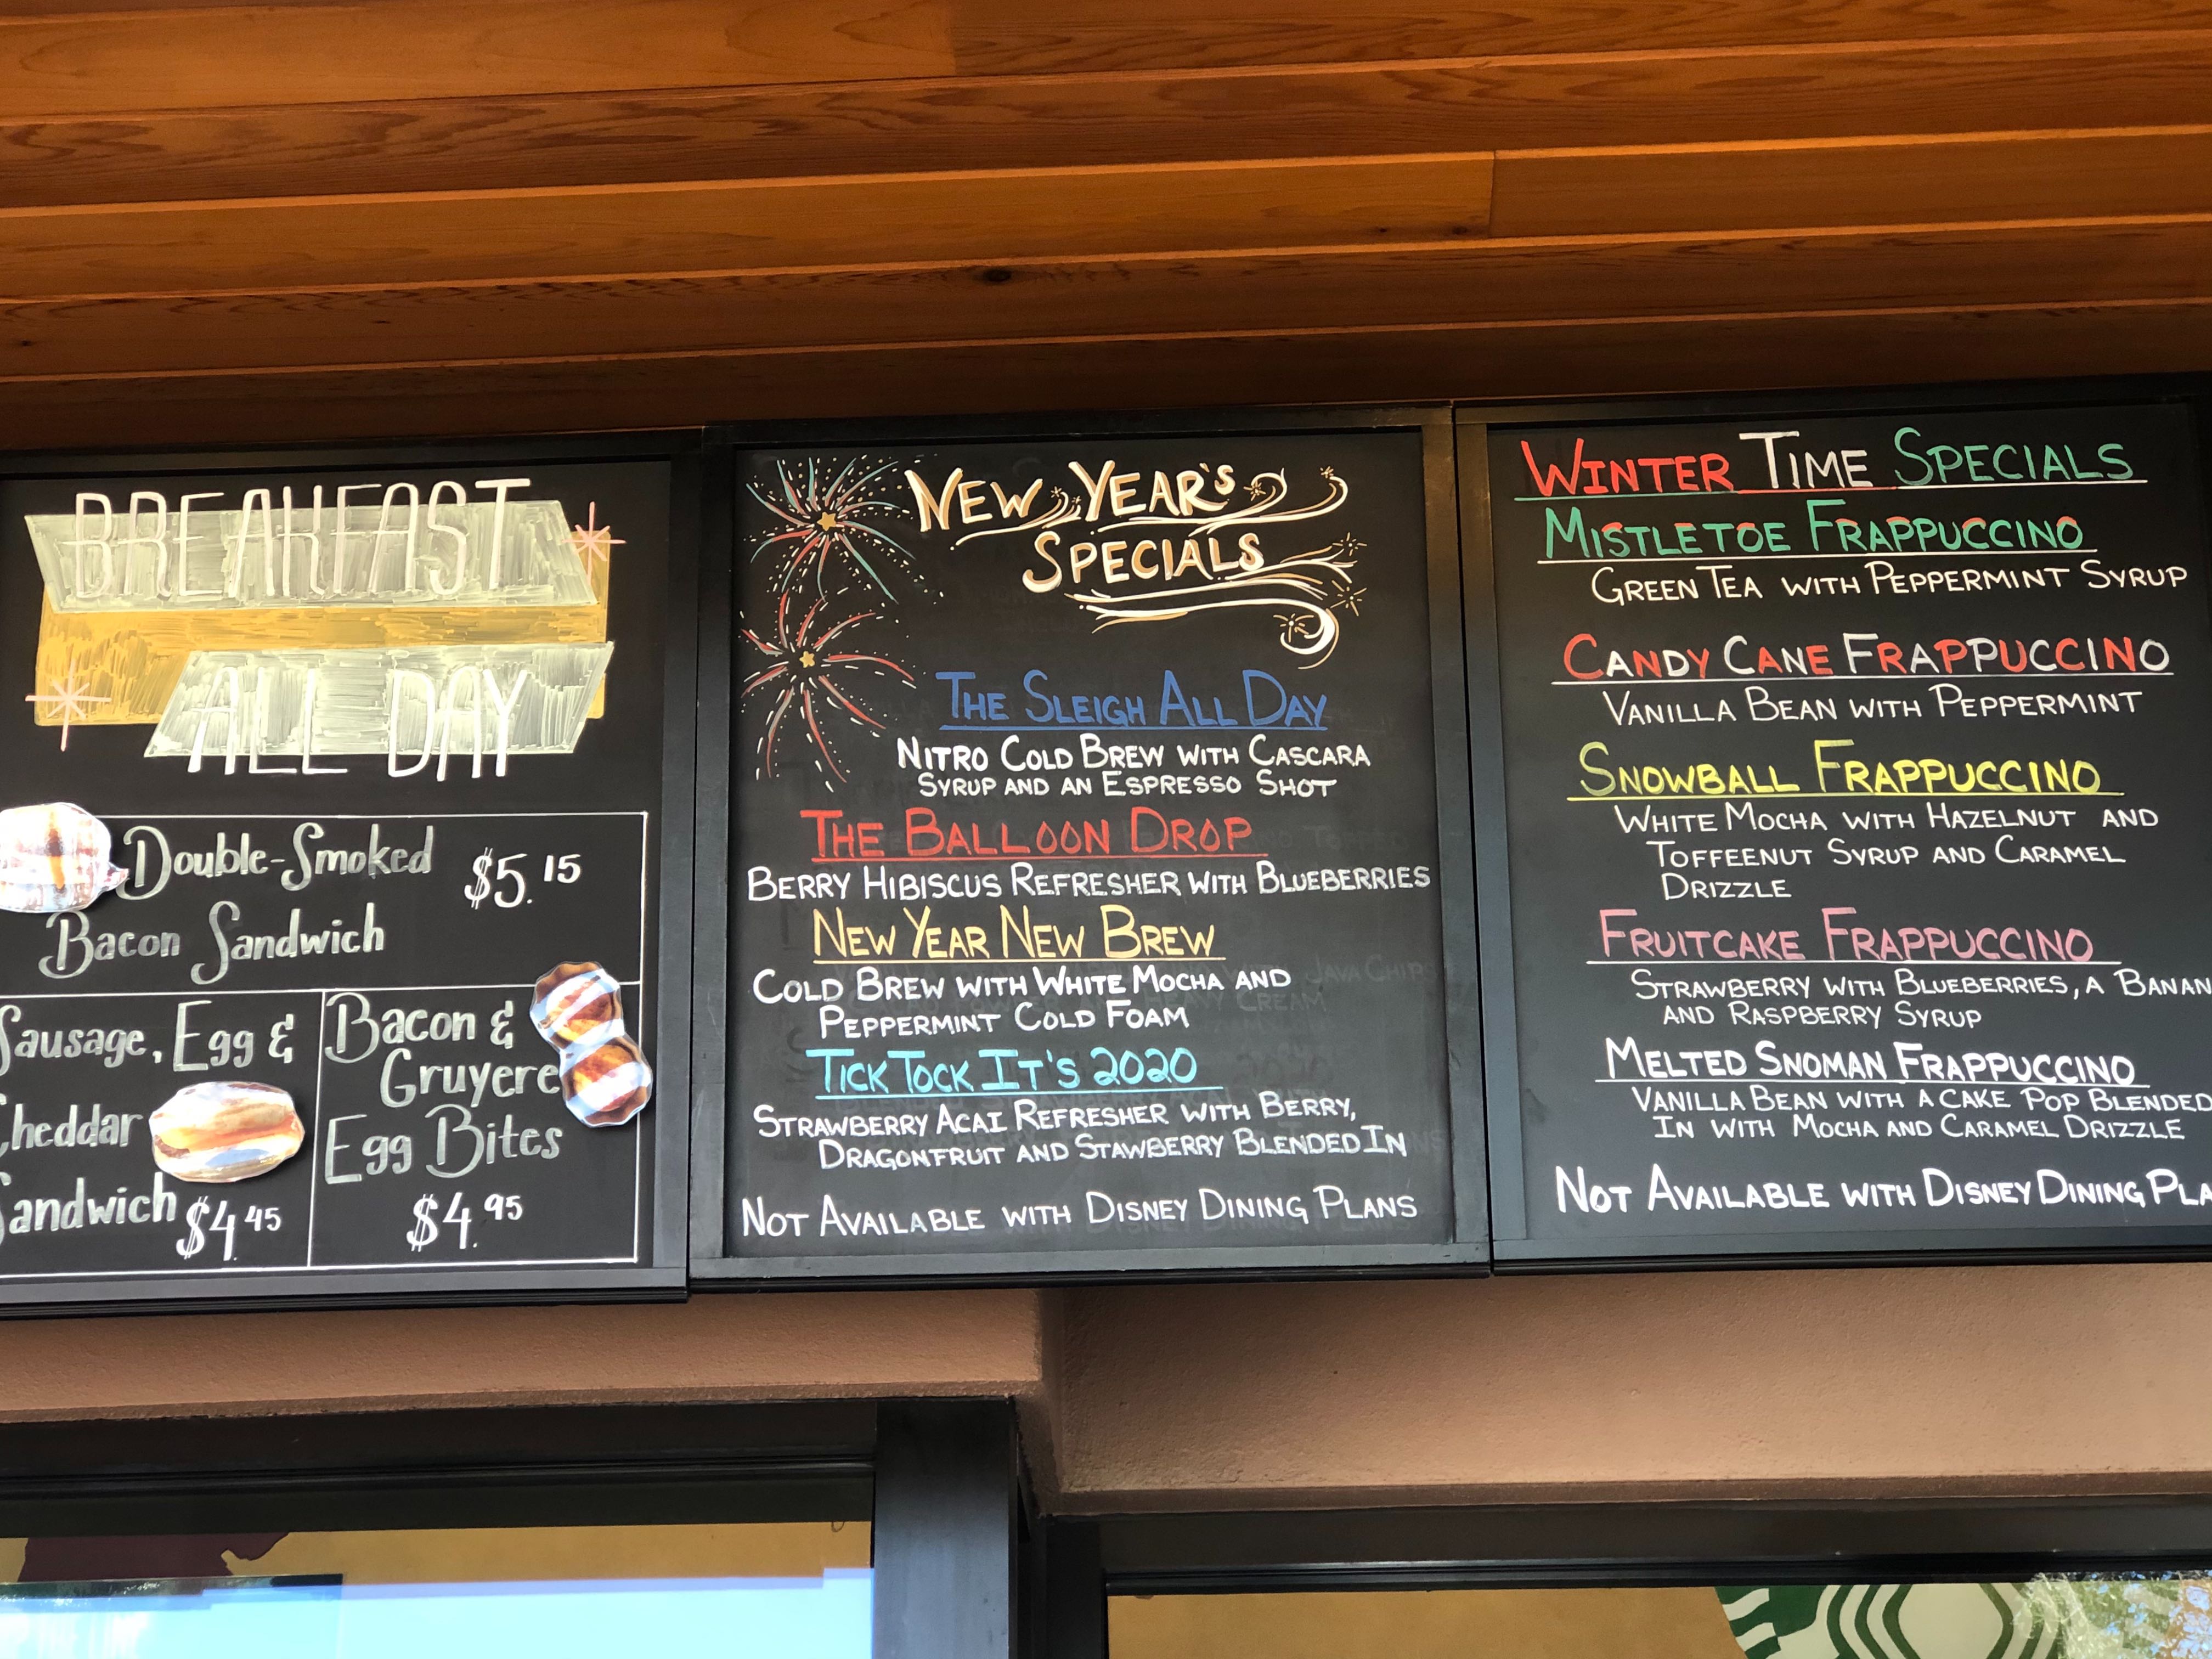 BREAKFAST
ALL DAY
Double-Smoked
Bacon Sandwich
$5.15
Sausage, Egg &
Cheddar
Sandwich $4.45
Bacon &
Gruyere
Egg Bites
$4.95
NEW YEAR'S
SPECIALS
THE SLEIGH ALL DAY
NITRO COLD BREW WITH CASCARA
SYRUP AND AN ESPRESSO SHOT
THE BALLOON DROP
BERRY HIBISCUS REFRESHER WITH BLUEBERRIES
NEW YEAR NEW BREW
COLD BREW WITH WHITE MOCHA AND
PEPPERMINT COLD FOAM
TICK TOCK IT'S 2020
STRAWBERRY ACAI REFRESHER WITH BERRY,
DRAGONFRUIT AND STAWBERRY BLENDED IN
NOT AVAILABLE WITH DISNEY DINING PLANS
WINTER TIME SPECIALS
MISTLETOE FRAPPUCCINO
GREEN TEA WITH PEPPERMINT SYRUP
CANDY CANE FRAPPUCCINO
VANILLA BEAN WITH PEPPERMINT
SNOWBALL FRAPPUCCINO
WHITE MOCHA WITH HAZELNUT AND
TOFFEENUT SYRUP AND CARAMEL
DRIZZLE
FRUITCAKE FRAPPUCCINO
STRAWBERRY WITH BLUEBERRIES, A BANAN
AND RASPBERRY SYRUP
MELTED SNOMAN FRAPPUCCINO
VANILLA BEAN WITH A CAKE POP BLENDED
IN WITH MOCHA AND CARAMEL DRIZZLE
NOT AVAILABLE WITH DISNEY DINING PLA